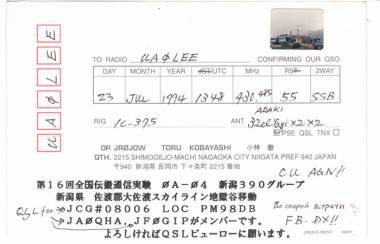 UAØLEE
TO RADIO UAØLEE CONFIRMING OUR QSO
DAY MONTH YEAR JST/UTC MHz RST 2WAY
23 JUL 1994 1348 430.485 55 SSB
RIG IC-375 ANT 32el Yagi x2x2
PSE QSL TNX
OP. JRØJOW TORU KOBAYASHI 小林 徹
QTH. 2215 SHIMOGEJO-MACHI NAGAOKA CITY NIIGATA PREF 940 JAPAN
〒940 新潟県 長岡市 下々条町 2215
CU AGN!!
第16回全国伝搬通信実験 ØA-04 新潟390グループ
新潟県 佐渡郡大佐渡スカイライン地獄谷移動
JCG#08006 LOC PM98DB
JAØQHA, JFØGIPがメンバーです。
よろしければQSLビューローに願います。
По скорой встречи
FB-DX!!